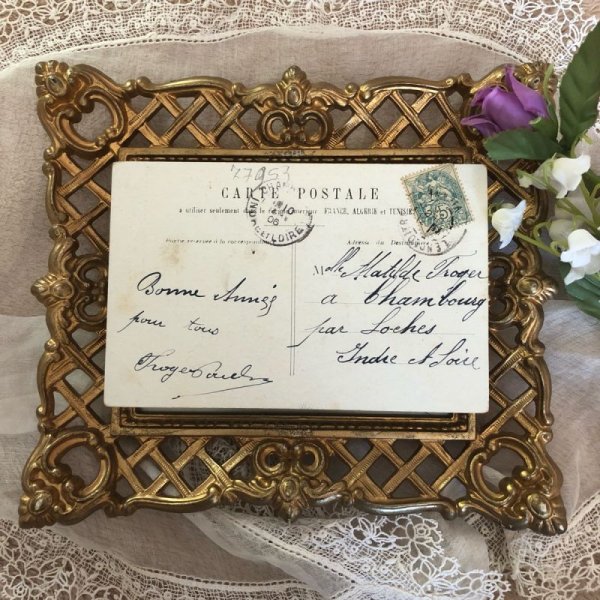 27953
CARTE POSTALE
à utiliser seulement dans le service intérieur FRANCE, ALGÉRIE et TUNISIE
Partie réservée à la correspondance
Adresse du Destinataire
Bonne Année
pour tous
Mlle Matilde Froger
a Chambourg
par Loches
Indre et Loire
06
ET LOIRE